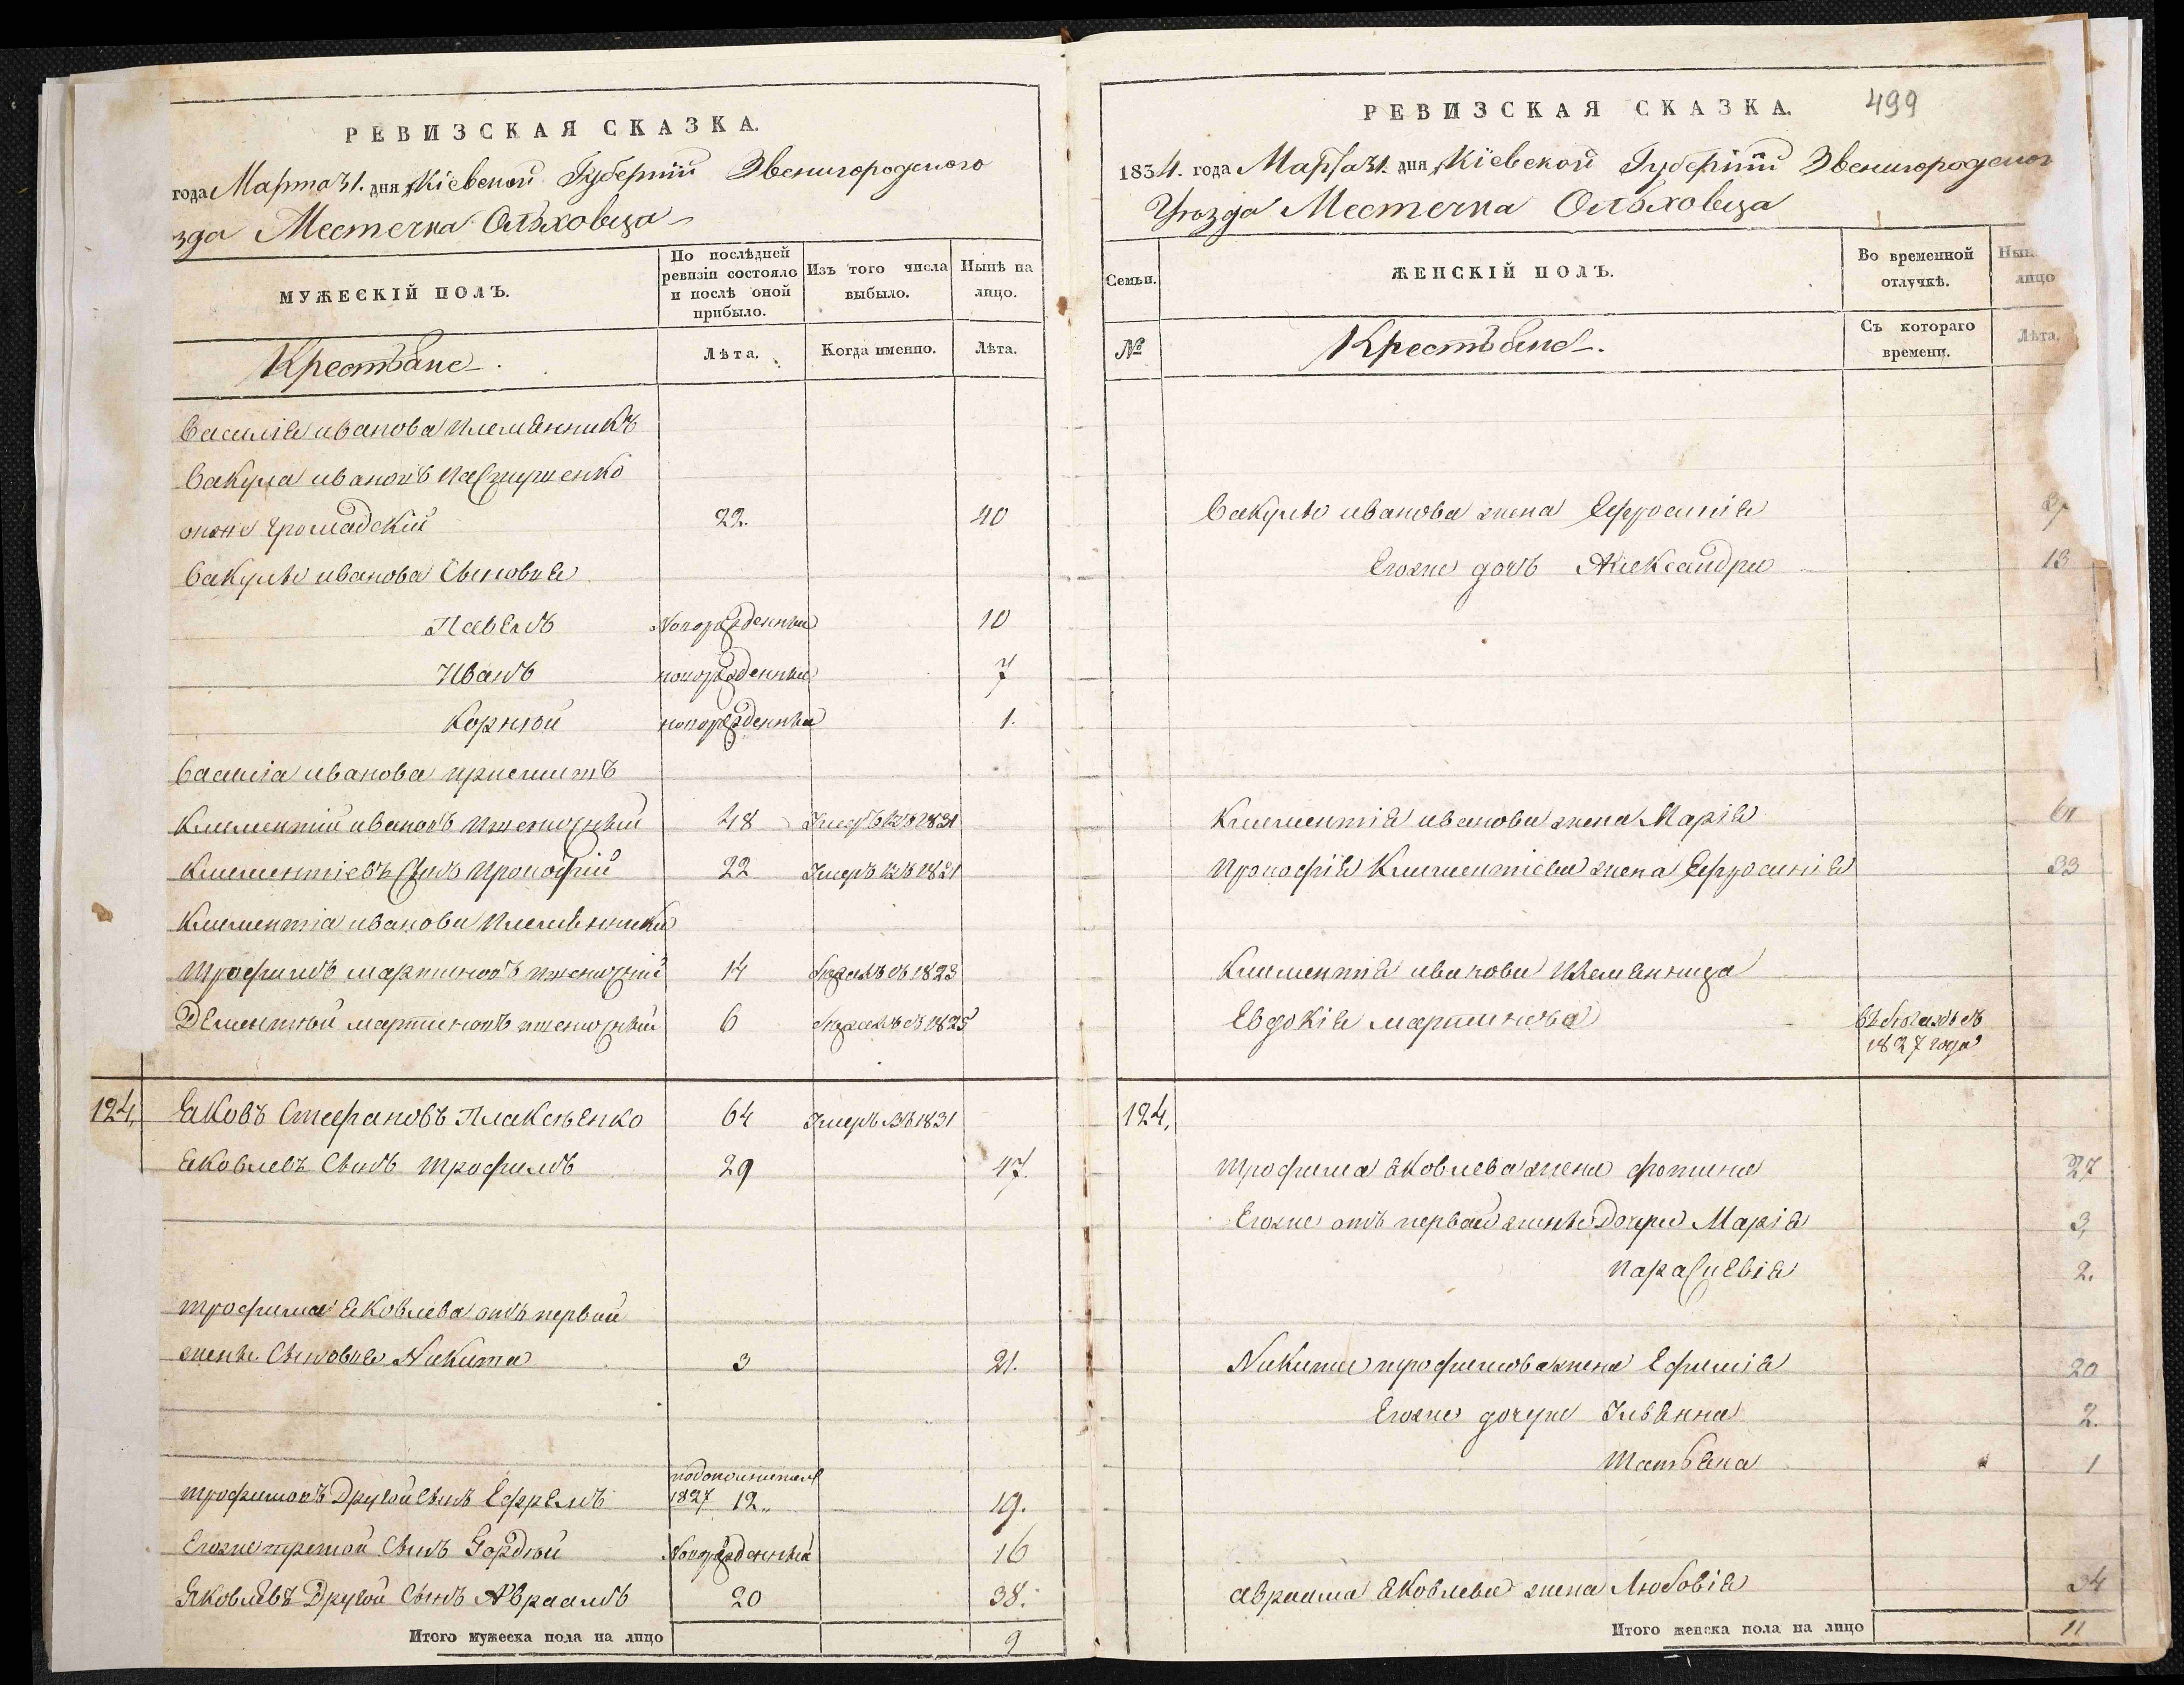 РЕВИЗСКАЯ СКАЗКА.
года Марта 31. дня Кіевской Губерніи Звенигородского
зда Местечка Ольховца
МУЖЕСКІЙ ПОЛЪ.
По послѣдней ревизіи состояло и послѣ оной прибыло.
Изъ того числа выбыло.
Нынѣ на лицо.
Крестьяне.
Лѣта.
Когда именно.
Лѣта.
Василія иванова племянникъ
Вакула ивановъ Пастушенко
онже громадскій 22. 40
Вакулы иванова Сыновія
Павелъ Новорожденный 10
Иванъ новорожденный 7
Корній новорожденный 1.
Василіа иванова
Климентій ивановъ 48 Умеръ въ 1831
Климентіевъ Сынъ Прокофій 22 Умеръ въ 1821
Климентіа иванова Племянники
Трофимъ мартиновъ 14 1823
Дементий мартиновъ 6 1825
124, Яковъ Стефановъ Плаксѣенко 64 Умеръ въ 1831
Яковлевъ Сынъ Трофимъ 29 47.
трофима Яковлева отъ первой
жены Сыновія Никита 3 21.
трофимовъ Другой Сынъ Ефремъ 1827 12,, 19.
Егоже третой Сынъ Гордей Новорожденный 16
Яковлевъ Другой Сынъ Авраамъ 20 38.
Итого мужеска пола на лицо 9
499
РЕВИЗСКАЯ СКАЗКА.
1834. года Марта 31. дня Кіевской Губерніи Звенигородског
Уѣзда Местечка Ольховца
Семьи.
ЖЕНСКІЙ ПОЛЪ.
Во временной отлучкѣ.
Нын
лицо
№
Крестьяне.
Съ котораго времени.
Лѣта.
Вакулы иванова жена Ефросинія
Егоже дочь Александра 13
Климентія иванова жена Марія
Прокофія Климентіева жена Ефросинія 33
Климентія иванова племянница
Евдокія мартинова въ бегахъ съ
1827 года
124,
Трофима Яковлева жена фотина 27
Егоже отъ первой жены Дочери Марія 3,
Параскевія 2.
Никиты трофимова жена Ефимія 20
Егоже дочери Ульянна 2.
Татьяна 1
авраама Яковлева жена Любовія 34
Итого женска пола на лицо 11